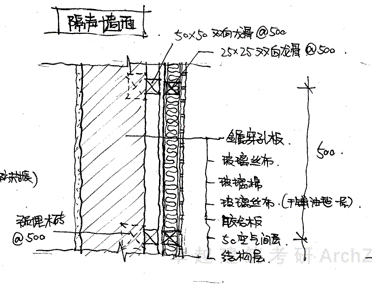 隔声墙面
50×50双向龙骨@500
25×25双向龙骨@500
金属穿孔板
玻璃丝布
500
玻璃棉
玻璃丝布(干铺油毡一层)
胶合板
预埋木砖
@500
50空气间层
结构层
考研·ArchZ